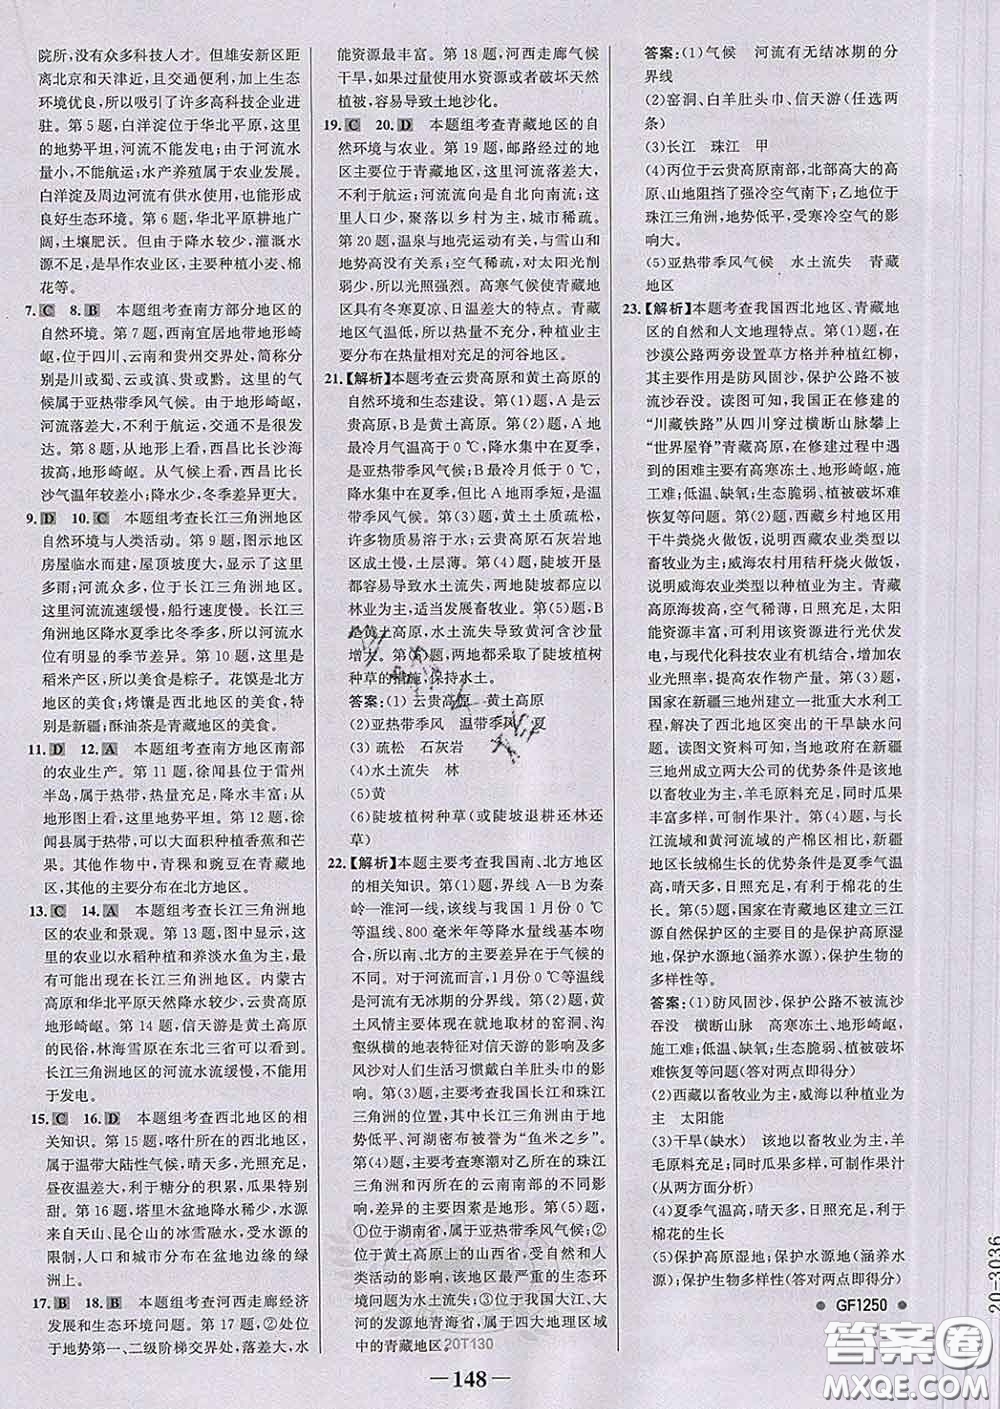 院所,没有众多科技人才。但雄安新区距
离北京和天津近,且交通便利,加上生态
环境优良,所以吸引了许多高科技企业进
驻。第5题,白洋淀位于华北平原,这里
的地势平坦,河流不能发电;由于河流水
量小,不能航运;水产养殖属于农业发展。
白洋淀及周边河流有供水使用,也能形成
良好生态环境。第6题,华北平原耕地广
阔,土壤肥沃。但由于降水较少,灌溉水
源不足,是旱作农业区,主要种植小麦、棉
花等。
7. C 8. B 本题组考查南方部分地区的
自然环境。第7题,西南宜居地带地形崎
岖,位于四川、云南和贵州交界处,简称分
别是川或蜀、云或滇、贵或黔。这里的气
候属于亚热带季风气候。由于地形崎岖,
河流落差大,不利于航运,交通也不是很发
达。第8题,从地形上看,西昌比长沙海
拔高,地形崎岖。从气候上看,西昌比长
沙气温年较差小;降水少,冬季差异更大。
9. D 10. C 本题组考查长江三角洲地区
自然环境与人类活动。第9题,图示地区
房屋临水而建,屋顶坡度大,显示了这里
多雨;河流众多,位于长江三角洲地区。
这里河流流速缓慢,船行速度慢。长江三
角洲地区降水夏季比冬季多,所以河流水
位有明显的季节差异。第10题,这里是
稻米产区,所以美食是粽子。花馍是北方
地区的美食;烤馕是西北地区的美食,特
别是新疆;酥油茶是青藏地区的美食。
11. D 12. A 本题组考查南方地区南部
的农业生产。第11题,徐闻县位于雷州
半岛,属于热带,热量充足,降水丰富;从
地形图上看,这里地势平坦。第12题,徐
闻县位于热带,可以大面积种植香蕉和芒
果。其他作物中,青稞和豌豆在青藏地
区,其他的主要分布在北方地区。
13. C 14. A 本题组考查长江三角洲地
区的农业和景观。第13题,图中显示,这
里的农业以水稻种植和养淡水鱼为主,最
有可能出现在长江三角洲地区。内蒙古
高原和华北平原天然降水少,云贵高原
地形崎岖。第14题,信天游是黄土高原
的民俗,林海雪原在东北三省可以看到。
长江三角洲地区的河流水流缓慢,不能用
于发电。
15. C 16. D 本题组考查西北地区的相
关知识。第15题,喀什所在的西北地区,
属于温带大陆性气候,晴天多,光照充足,
昼夜温差大,利于糖分的积累,瓜果特别
甜。第16题,塔里木盆地降水稀少,水源
来自天山、昆仑山的冰雪融水,受水源的
限制,人口和城市分布在盆地边缘的绿
洲上。
17. B 18. B 本题组考查河西走廊经济
发展和生态环境问题。第17题,②处位
于地势第一、二级阶梯交界处,落差大,水
能资源最丰富。第18题,河西走廊气候
干旱,如果过量使用水资源或破坏天然
植被,容易导致土地沙化。
19. C 20. D 本题组考查青藏地区的自
然环境与农业。第19题,邮路经过的地
区,这里属于青藏地区,河流落差大,
不利于航运;河流流向是自北向南流;这
里人口少,聚落以乡村为主,城市稀疏。
第20题,温泉与地壳运动有关,与雪山和
海拔高没有关系;空气稀薄,对太阳光削
弱少,所以光照强烈。高寒气候使青藏地
区具有冬寒夏凉、日温差大的特点。青藏
地区气温低,所以热量不充分,种植业主要
分布在热量相对充足的河谷地区。
21.【解析】本题考查云贵高原和黄土高原的
自然环境和生态建设。第(1)题,A是云
贵高原,B是黄土高原。第(2)题,A地
最冷月气温高于0℃,降水集中在夏季,
是亚热带季风气候;B最冷月小于0℃,
降水集中在夏季,但比A地雨季短,是温
带季风气候。第(3)题,黄土土质疏松,
许多物质易溶于水;云贵高原石灰岩地
区成土慢,土层薄。第(4)题,陡坡开垦
都容易导致水土流失,两地陡坡都应以
林业为主,适当发展畜牧业。第(5)题,B
是黄土高原,水土流失导致黄河含沙量
增大。第(6)题,两地都采取了陡坡植树
种草的措施,保持水土。
答案:(1)云贵高原 黄土高原
(2)亚热带季风 温带季风 夏
(3)疏松 石灰岩
(4)水土流失 林
(5)黄
(6)陡坡植树种草(或陡坡退耕还林还
草)
22.【解析】本题主要考查我国南、北方地区
的相关知识。第(1)题,界线A—B为秦
岭—淮河一线,该线与我国1月份0℃
等温线、800毫米年等降水量线基本吻
合,所以南、北方的主要差异在于气候的
不同。对于河流而言,1月份0℃等温线
是河流有无冰期的分界线。第(2)题,黄
土风情主要体现在就地取材的窑洞、沟
壑纵横的地表特征对信天游的影响及多
风沙对人们生活习惯戴白羊肚头巾的影
响。第(3)题,主要考查我国长江和珠江
三角洲的位置,其中长江三角洲由于地
势低平、河湖密布被誉为“鱼米之乡”。
第(4)题,主要考查寒潮对乙所在的珠江
三角洲和丙所在的云南南部的不同影
响,造成差异的原因是地形。第(5)题,
①位于湖南省,属于亚热带季风气候;②
位于黄土高原上的山西省,受自然和人
类活动的影响,该地区最大的生态环境
问题为水土流失;③位于我国大江、大
河的源地青海省,属于四大地理区域中
的青藏地区。
答案:(1)气候 河流有无结冰期的分
界线
(2)窑洞、白羊肚头巾、信天游(任选两
条)
(3)长江 珠江 甲
(4)丙位于云贵高原南部,北部高大的高
原、山地阻挡了强冷空气南下;乙地位于
珠江三角洲,地势低平,受寒冷空气的影
响大。
(5)亚热带季风气候 水土流失 青藏
地区
23.【解析】本题考查我国西北地区、青藏地
区的自然和人文地理特点。第(1)题,在
沙漠公路两旁设置草方格并种植红柳,
其主要目的是防风固沙,保护公路不被
流沙吞没。读图可知,目前正在修建的
“川藏铁路”从四川穿过横断山脉攀上
“世界屋脊”青藏高原,在修建过程中遇
到的困难主要有高寒冻土、地形崎岖,施
工难;低温、缺氧;生态脆弱,植被破坏难
恢复等问题。第(2)题,西藏乡村地区
用干牛粪烧火做饭,说明西藏农业类型
以畜牧业为主;威海农村用秸秆烧火做
饭,说明威海农业类型以种植业为主。青藏
高原海拔高,空气稀薄,日照充足,太阳
能资源丰富,可利用该资源进行光伏发
电,与现代化科技农业有机结合,增强农
业光照率,提高农作物产量。第(3)题,
国家在新疆三地州建立一批重大水利工
程,主要解决了西北地区突出的干旱缺水问
题。读图文资料可知,当地政府在新疆
三地州建立两大公司的优势条件是该地
以畜牧业为主,羊毛原料丰富;温差大,瓜
果丰富多样,可制作果汁。第(4)题,与
长江流域和黄河流域的产棉区比,新疆
地区长绒棉生长的优势条件是夏季气温
高,晴天多,日照充足,有利于棉花的生
长。第(5)题,国家在青藏地区建立三江
源自然保护区的主要目的是保护高原湿
地,保护水源地(涵养水源),保护生物的
多样性等。
答案:(1)防风固沙,保护公路不被流沙
吞没 横断山脉 高寒冻土、地形崎岖,
施工难;低温、缺氧;生态脆弱,植被破坏
难恢复等问题(答对两点即得分)
(2)西藏以畜牧业为主,威海以种植业为
主 太阳能
(3)干旱(缺水) 该地以畜牧业为主,羊
毛原料充足;瓜果丰富,可制作果汁
(从两方面分析)
(4)夏季气温高,晴天多,日照足,有利于
棉花的生长
(5)保护高原湿地;保护水源地(涵养水
源);保护生物多样性(答对两点即得分)
GF1250
20-3036
20T130
148
答案圈
MXQE.COM